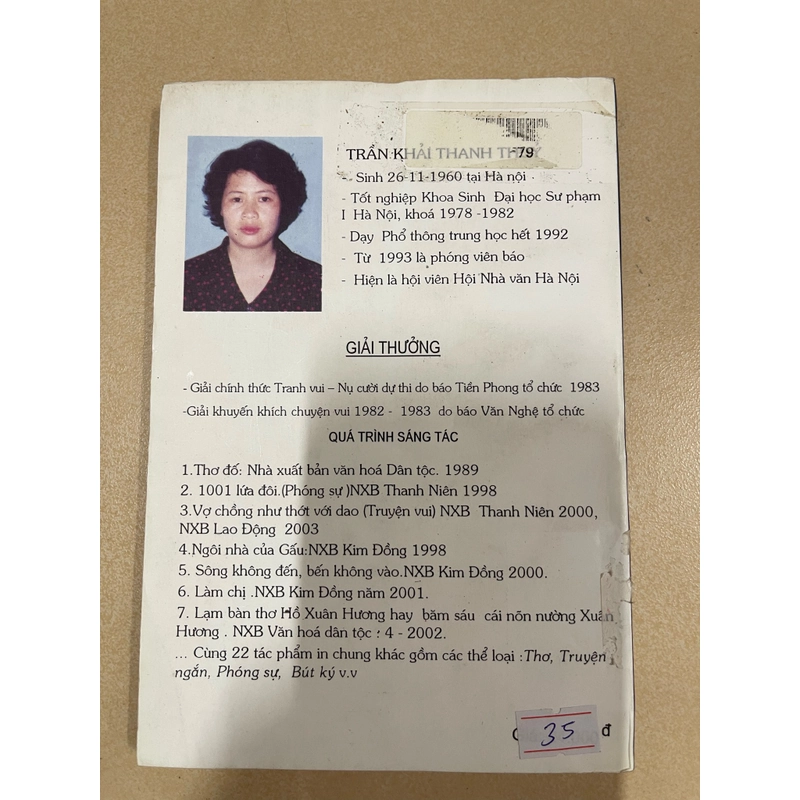 TRẦN KHẢI THANH THỦY
79
- Sinh 26-11-1960 tại Hà nội
- Tốt nghiệp Khoa Sinh Đại học Sư phạm
I Hà Nội, khoá 1978 -1982
- Dạy Phổ thông trung học hết 1992
- Từ 1993 là phóng viên báo
- Hiện là hội viên Hội Nhà văn Hà Nội
GIẢI THƯỞNG
- Giải chính thức Tranh vui – Nụ cười dự thi do báo Tiền Phong tổ chức 1983
-Giải khuyến khích chuyện vui 1982 - 1983 do báo Văn Nghệ tổ chức
QUÁ TRÌNH SÁNG TÁC
1.Thơ đố: Nhà xuất bản văn hoá Dân tộc. 1989
2. 1001 lứa đôi.(Phóng sự )NXB Thanh Niên 1998
3.Vợ chồng như thớt với dao (Truyện vui) NXB Thanh Niên 2000,
NXB Lao Động 2003
4.Ngôi nhà của Gấu:NXB Kim Đồng 1998
5. Sông không đến, bến không vào.NXB Kim Đồng 2000.
6. Làm chị .NXB Kim Đồng năm 2001.
7. Lạm bàn thơ Hồ Xuân Hương hay băm sáu cái nõn nường Xuân
Hương . NXB Văn hoá dân tộc : 4 - 2002.
... Cùng 22 tác phẩm in chung khác gồm các thể loại :Thơ, Truyện
ngắn, Phóng sự, Bút ký v.v
35 đ